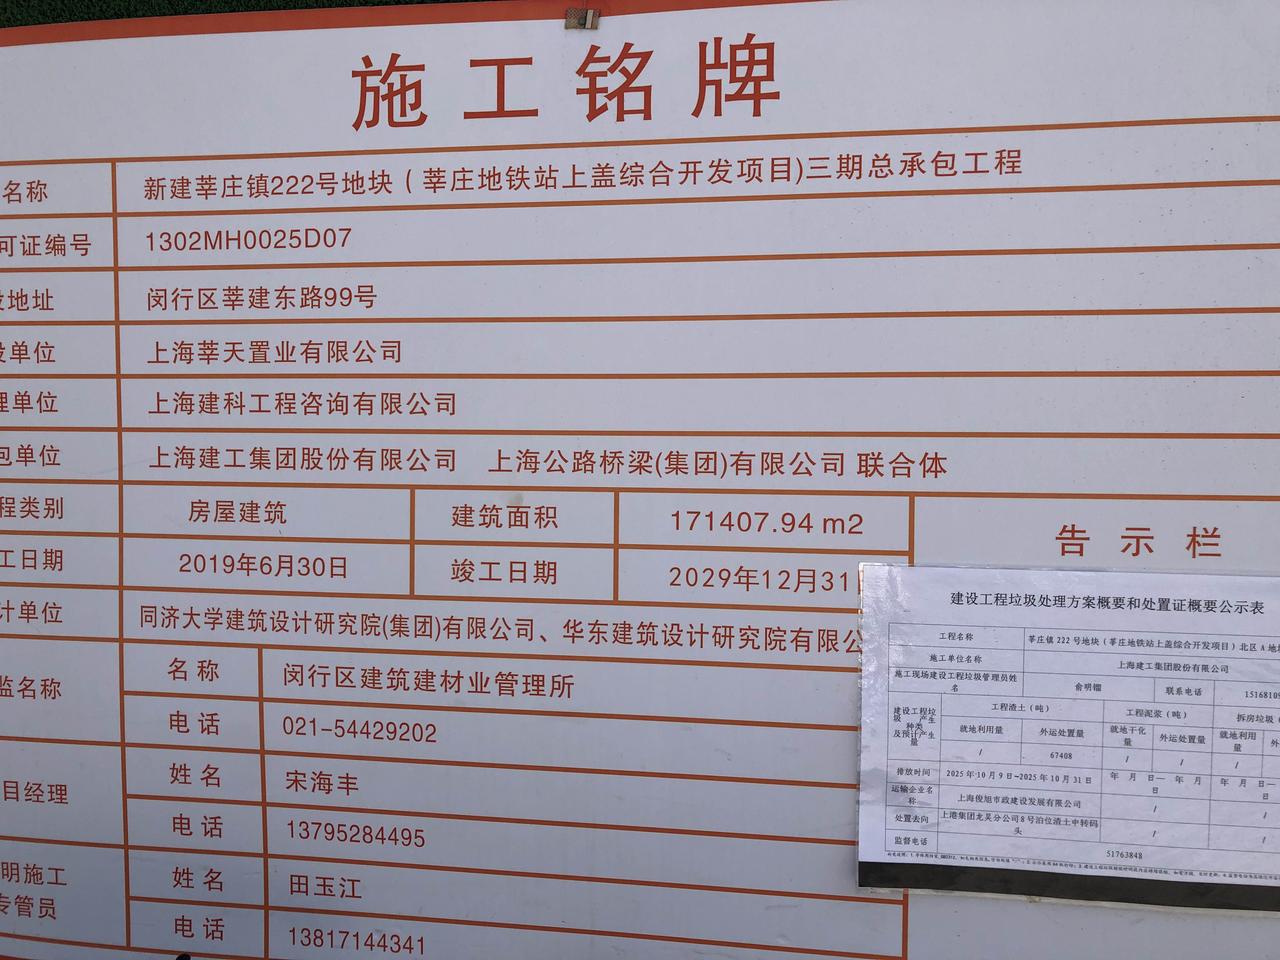 施工铭牌
名称 新建莘庄镇222号地块（莘庄地铁站上盖综合开发项目)三期总承包工程
可证编号 1302MH0025D07
地址 闵行区莘建东路99号
单位 上海莘天置业有限公司
单位 上海建科工程咨询有限公司
包单位 上海建工集团股份有限公司 上海公路桥梁(集团)有限公司 联合体
程类别 房屋建筑 建筑面积 171407.94 m2
工日期 2019年6月30日 竣工日期 2029年12月31
计单位 同济大学建筑设计研究院(集团)有限公司、华东建筑设计研究院有限公
监名称 名称 闵行区建筑建材业管理所
电话 021-54429202
目经理 姓名 宋海丰
电话 13795284495
明施工
专管员
姓名 田玉江
电话 13817144341
告示栏
建设工程垃圾处理方案概要和处置证概要公示表
工程名称 莘庄镇222号地块（莘庄地铁站上盖综合开发项目）北区A地
施工单位名称 上海建工集团股份有限公司
施工现场建设工程垃圾管理员姓名 俞明镏 联系电话 1516810
建设工程垃圾产生种类及预计产生量 工程渣土（吨） 工程泥浆（吨） 拆房垃圾（
就地利用量 外运处置量 就地干化量 外运处置量 就地利用量
/ 67408 / / /
排放时间 2025年10月9日~2025年10月31日 年 月 日— 年 月 日 年 月 日—
运输企业名称 上海俊旭市政建设发展有限公司 /
处置去向 上港集团龙吴分公司8号泊位渣土中转码头 /
监督电话 51763848